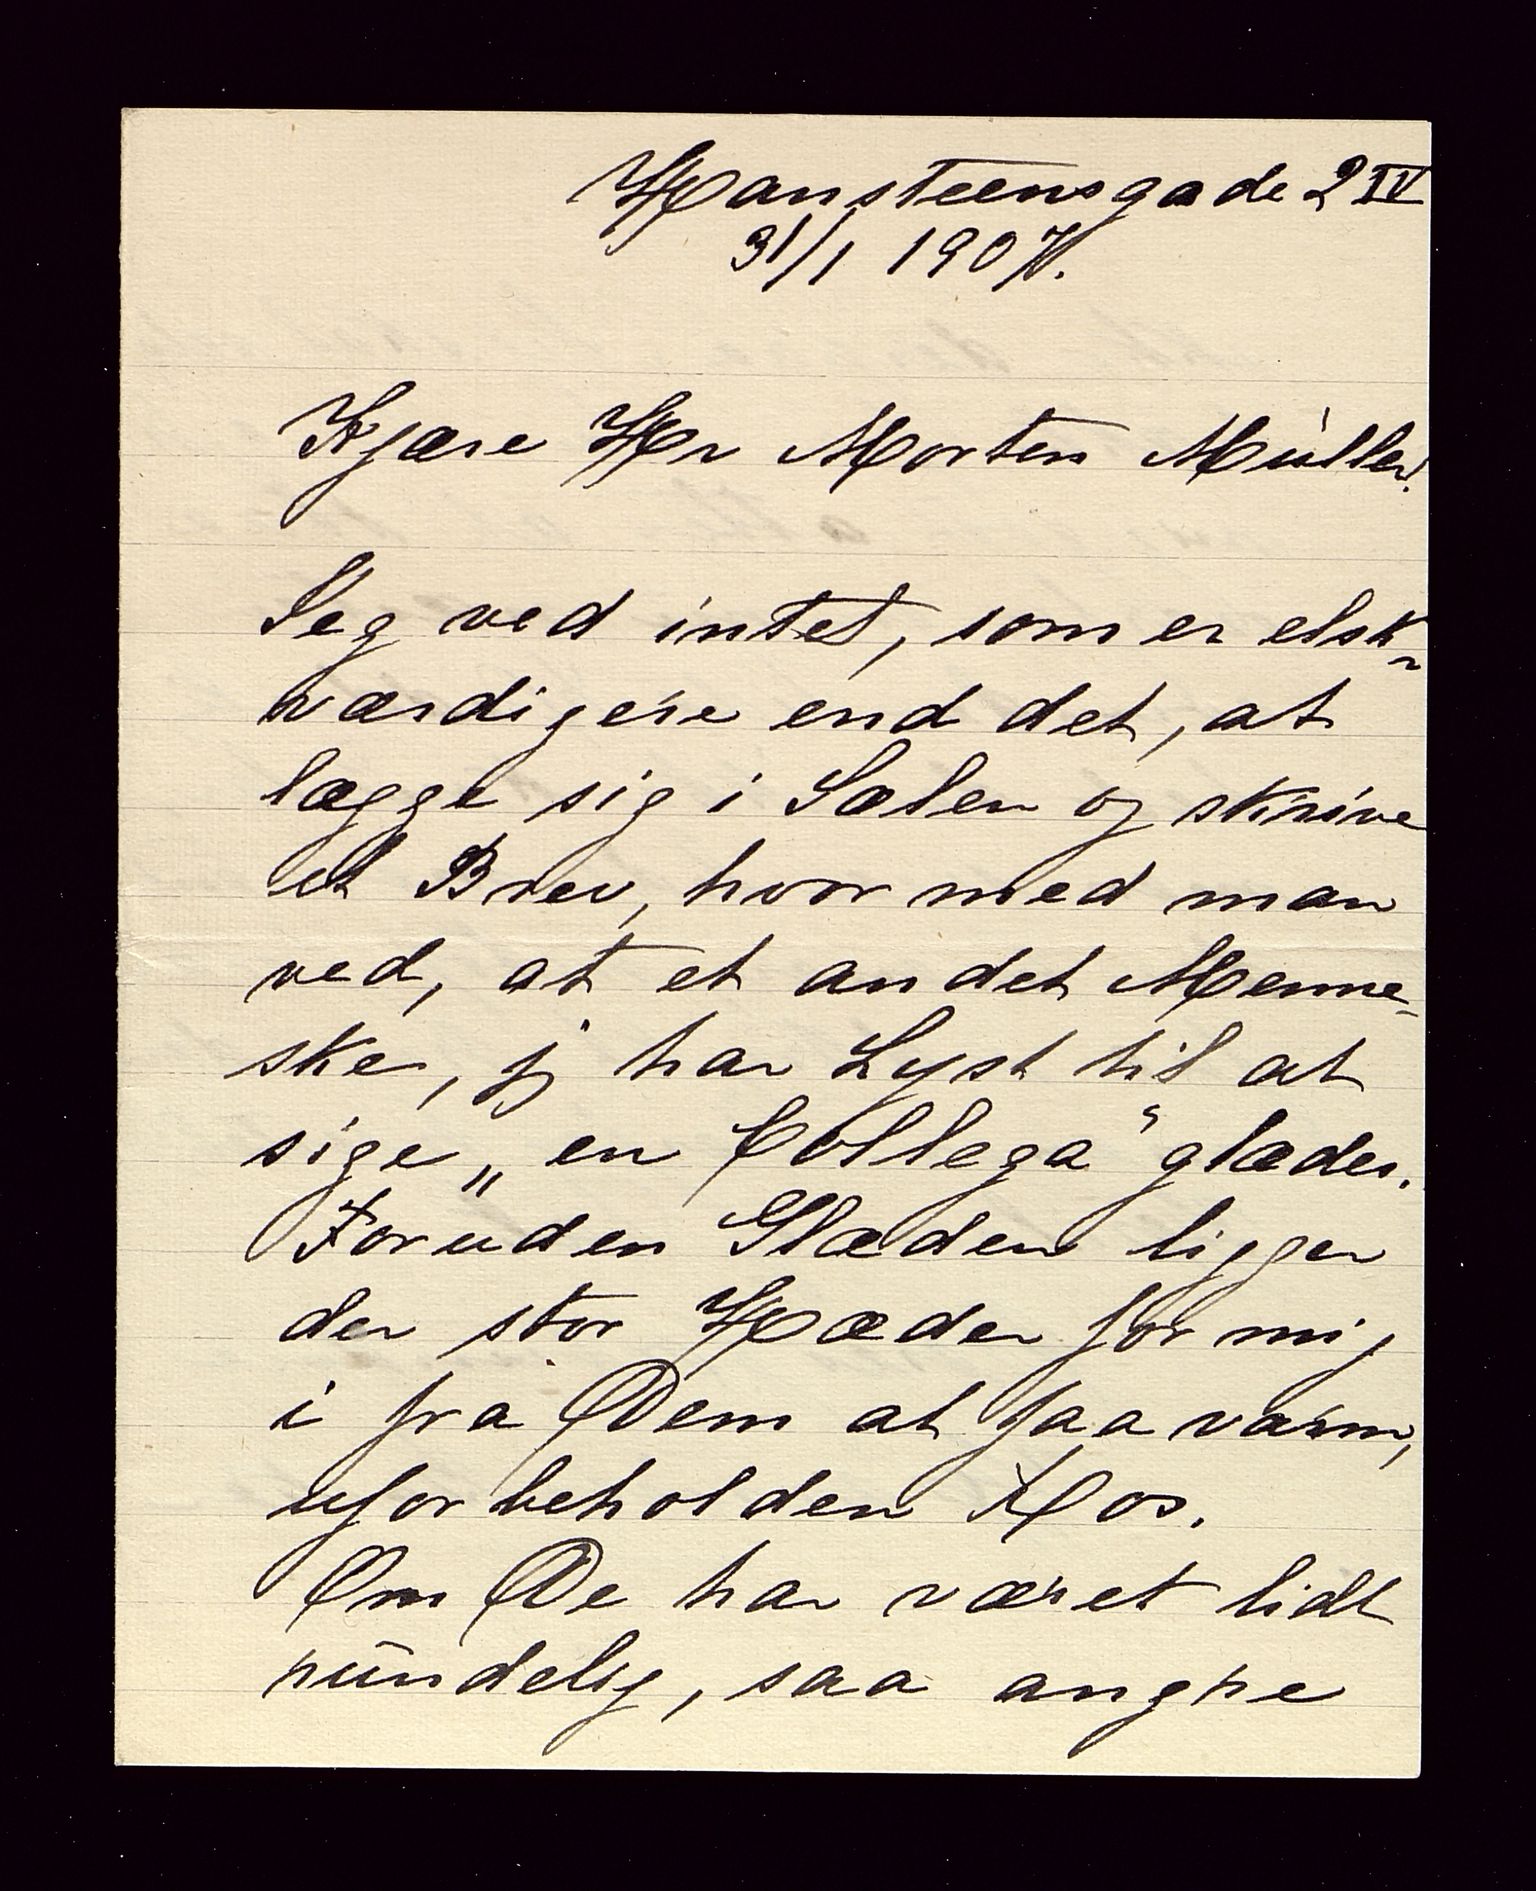 Hansteensgade 2 IV
31/1 1907.
Kjære Hr Morten Müller.
Jeg ved intet, som er elsk-
værdigere end det, at
lægge sig i Sælen og skrive
et Brev, hvormed man
ved, at et andet Menne-
ske, jeg har Lyst til at
sige „en Collega“ glædes.
Foruden Glæden ligger
der stor Hæder for mig
i fra Dem at faa varm,
uforbeholden Ros.
Om De har været lidt
rundelig, saa angre